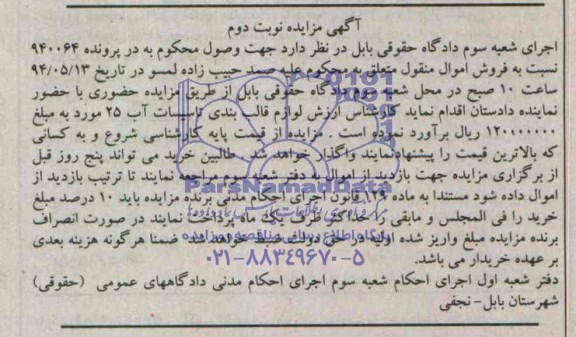 آگهی مزایده نوبت دوم
اجرای شعبه سوم دادگاه حقوقی بابل در نظر دارد جهت وصول محکوم به در پرونده ۹۴۰۰۶۴
نسبت به فروش اموال منقول متعلق به محکوم علیه صمد حبیب زاده لمسو در تاریخ ۹۴/۰۵/۱۳
ساعت ۱۰ صبح در محل شعبه سوم دادگاه حقوقی بابل از طریق مزایده حضوری با حضور
نماینده دادستان اقدام نماید کارشناس ارزش لوازم قالب بندی تاسیسات آب ۲۵ مورد به مبلغ
۱۲۰۰۰۰۰۰۰ ریال برآورد نموده است . مزایده از قیمت پایه کارشناسی شروع و به کسانی
که بالاترین قیمت را پیشنهاد نمایند واگذار خواهد شد. طالبین خرید می تواند پنج روز قبل
از برگزاری مزایده جهت بازدید از اموال به دفتر شعبه سوم مراجعه نمایند تا ترتیب بازدید از
اموال داده شود مستندا به ماده ۱۲۹ قانون اجرای احکام مدنی برنده مزایده باید ۱۰ درصد مبلغ
خرید را فی المجلس و مابقی را حداکثر ظرف یک ماه پرداخت نمایند در صورت انصراف
برنده مزایده مبلغ واریز شده اولیه در حق دولت ضبط خواهد شد. ضمنا هرگونه هزینه بعدی
بر عهده خریدار می باشد.
دفتر شعبه اول اجرای احکام شعبه سوم اجرای احکام مدنی دادگاههای عمومی (حقوقی)
شهرستان بابل- نجفی
ParsNamadData
۰۲۱-۸۸۳۴۹۶۷۰-۵